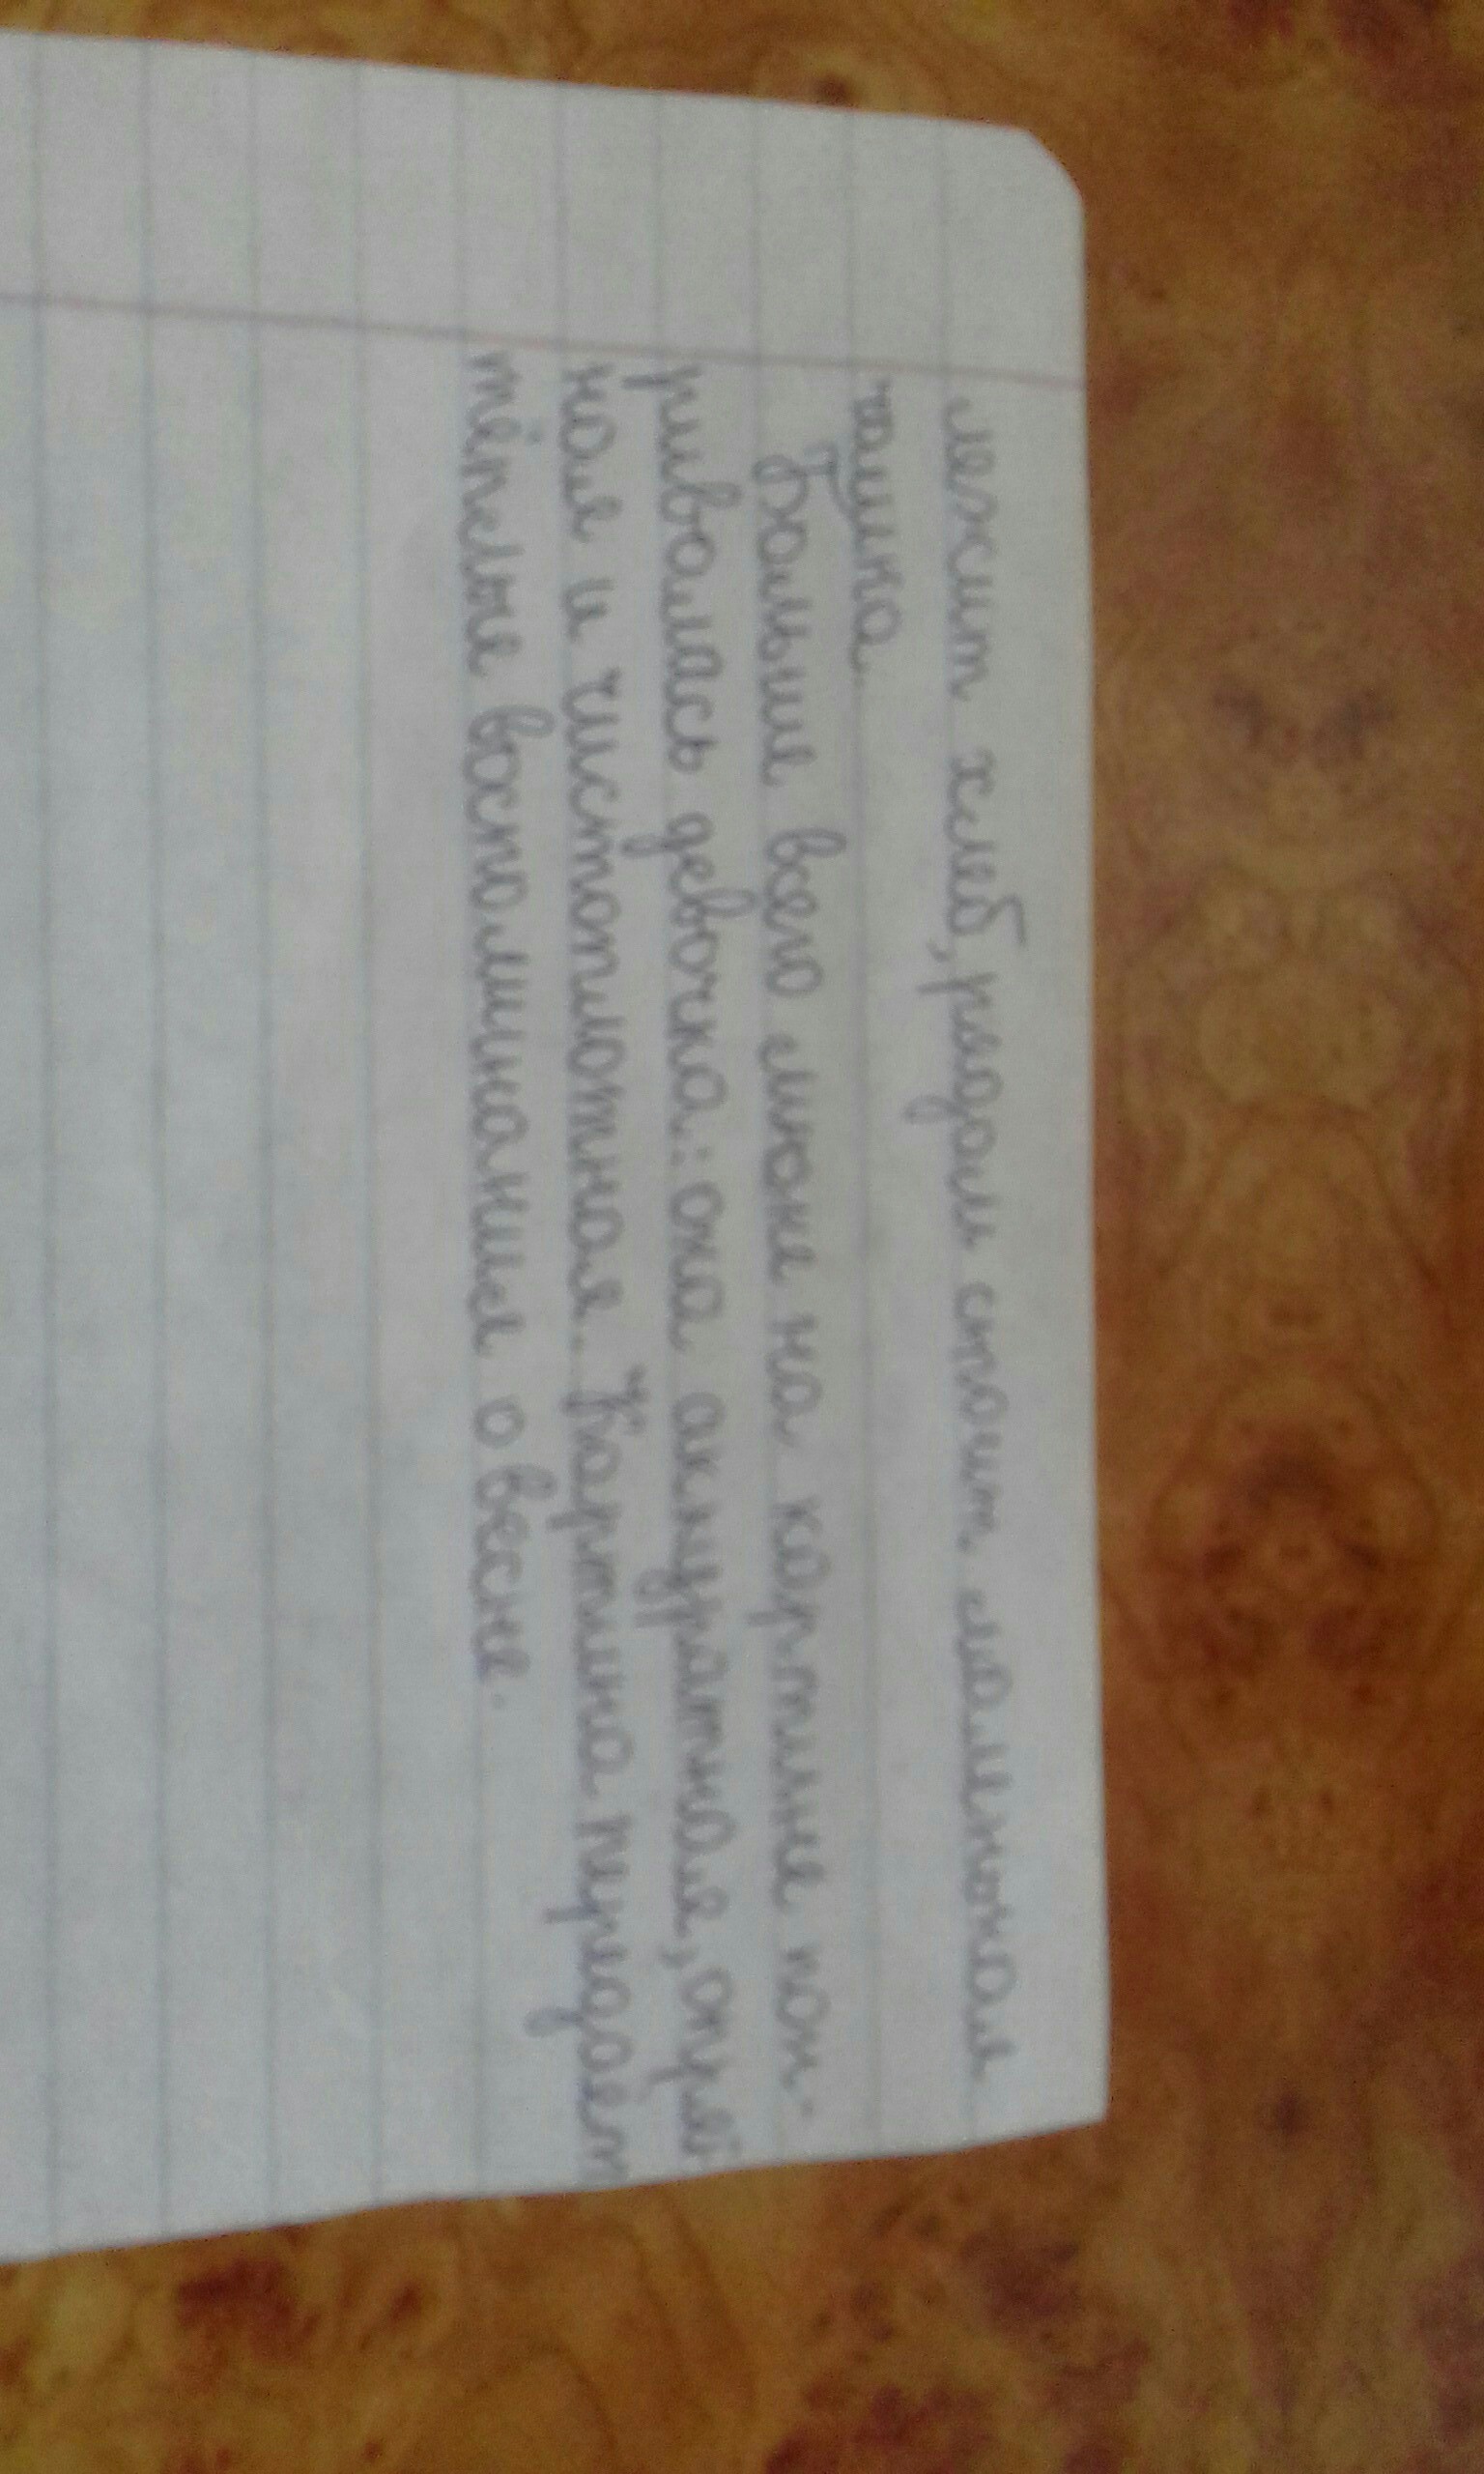 лежит хлеб, рядом стоит маленькая
чашка
Больше всего мне на картине пон-
ривалась девочка: она акнуратная, опрят
ная и чистоплотная. Картина передаёт
тёплые воспоминания о весне.